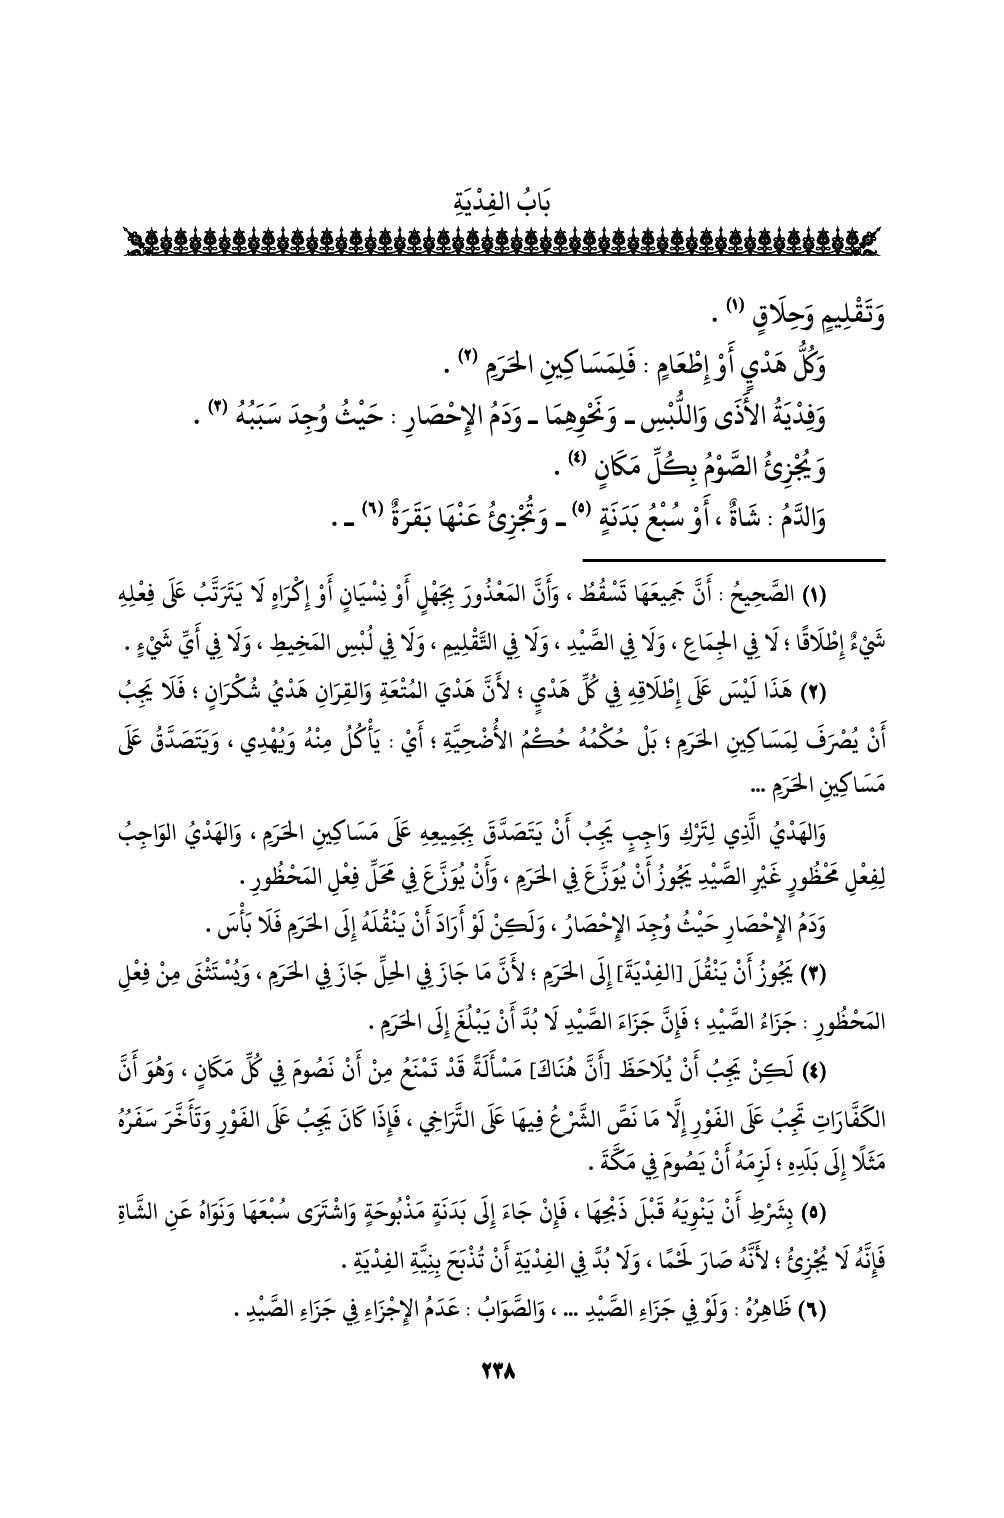 بَابُ الفِدْيَةِ
وَتَقْلِيمٍ وَحِلَاقٍ (١) .
وَكُلُّ هَدْيٍ أَوْ إِطْعَامٍ : فَلِمَسَاكِينِ الحَرَمِ (٢) .
وَفِدْيَةُ الأَذَى وَاللُّبْسِ ـ وَنَحْوِهِمَا ـ وَدَمُ الإِحْصَارِ : حَيْثُ وُجِدَ سَبَبُهُ (٣) .
وَيُجْزِئُ الصَّوْمُ بِكُلِّ مَكَانٍ (٤) .
وَالدَّمُ : شَاةٌ ، أَوْ سُبْعُ بَدَنَةٍ (٥) ـ وَتُجْزِئُ عَنْهَا بَقَرَةٌ (٦) ـ .
(١) الصَّحِيحُ : أَنَّ جَمِيعَهَا تَسْقُطُ ، وَأَنَّ المَعْذُورَ بِجَهْلٍ أَوْ نِسْيَانٍ أَوْ إِكْرَاهٍ لَا يَتَرَتَّبُ عَلَى فِعْلِهِ
شَيْءٌ إِطْلَاقًا ؛ لَا فِي الجِمَاعِ ، وَلَا فِي الصَّيْدِ ، وَلَا فِي التَّقْلِيمِ ، وَلَا فِي لُبْسِ المَخِيطِ ، وَلَا فِي أَيِّ شَيْءٍ .
(٢) هَذَا لَيْسَ عَلَى إِطْلَاقِهِ فِي كُلِّ هَدْيٍ ؛ لأَنَّ هَدْيَ المُتْعَةِ وَالقِرَانِ هَدْيُ شُكْرَانٍ ؛ فَلَا يَجِبُ
أَنْ يُصْرَفَ لِمَسَاكِينِ الحَرَمِ ؛ بَلْ حُكْمُهُ حُكْمُ الأُضْحِيَّةِ ؛ أَيْ : يَأْكُلُ مِنْهُ وَيُهْدِي ، وَيَتَصَدَّقُ عَلَى
مَسَاكِينِ الحَرَمِ ...
وَالهَدْيُ الَّذِي لِتَرْكِ وَاجِبٍ يَجِبُ أَنْ يَتَصَدَّقَ بِجَمِيعِهِ عَلَى مَسَاكِينِ الحَرَمِ ، وَالهَدْيُ الوَاجِبُ
لِفِعْلِ مَحْظُورٍ غَيْرِ الصَّيْدِ يَجُوزُ أَنْ يُوَزَّعَ فِي الحَرَمِ ، وَأَنْ يُوَزَّعَ فِي مَحَلِّ فِعْلِ المَحْظُورِ .
وَدَمُ الإِحْصَارِ حَيْثُ وُجِدَ الإِحْصَارُ ، وَلَكِنْ لَوْ أَرَادَ أَنْ يَنْقُلَهُ إِلَى الحَرَمِ فَلَا بَأْسَ .
(٣) يَجُوزُ أَنْ يَنْقُلَ [الفِدْيَةَ] إِلَى الحَرَمِ ؛ لأَنَّ مَا جَازَ فِي الحِلِّ جَازَ فِي الحَرَمِ ، وَيُسْتَثْنَى مِنْ فِعْلِ
المَحْظُورِ : جَزَاءُ الصَّيْدِ ؛ فَإِنَّ جَزَاءَ الصَّيْدِ لَا بُدَّ أَنْ يَبْلُغَ إِلَى الحَرَمِ .
(٤) لَكِنْ يَجِبُ أَنْ يُلَاحَظَ [أَنَّ هُنَاكَ] مَسْأَلَةً قَدْ تَمْنَعُ مِنْ أَنْ نَصُومَ فِي كُلِّ مَكَانٍ ، وَهُوَ أَنَّ
الكَفَّارَاتِ تَجِبُ عَلَى الفَوْرِ إِلَّا مَا نَصَّ الشَّرْعُ فِيهَا عَلَى التَّرَاخِي ، فَإِذَا كَانَ يَجِبُ عَلَى الفَوْرِ وَتَأَخَّرَ سَفَرُهُ
مَثَلًا إِلَى بَلَدِهِ ؛ لَزِمَهُ أَنْ يَصُومَ فِي مَكَّةَ .
(٥) بِشَرْطِ أَنْ يَنْوِيَهُ قَبْلَ ذَبْحِهَا ، فَإِنْ جَاءَ إِلَى بَدَنَةٍ مَذْبُوحَةٍ وَاشْتَرَى سُبْعَهَا وَنَوَاهُ عَنِ الشَّاةِ
فَإِنَّهُ لَا يُجْزِئُ ؛ لأَنَّهُ صَارَ لَحْمًا ، وَلَا بُدَّ فِي الفِدْيَةِ أَنْ تُذْبَحَ بِنِيَّةِ الفِدْيَةِ .
(٦) ظَاهِرُهُ : وَلَوْ فِي جَزَاءِ الصَّيْدِ ... ، وَالصَّوَابُ : عَدَمُ الإِجْزَاءِ فِي جَزَاءِ الصَّيْدِ .
٢٣٨